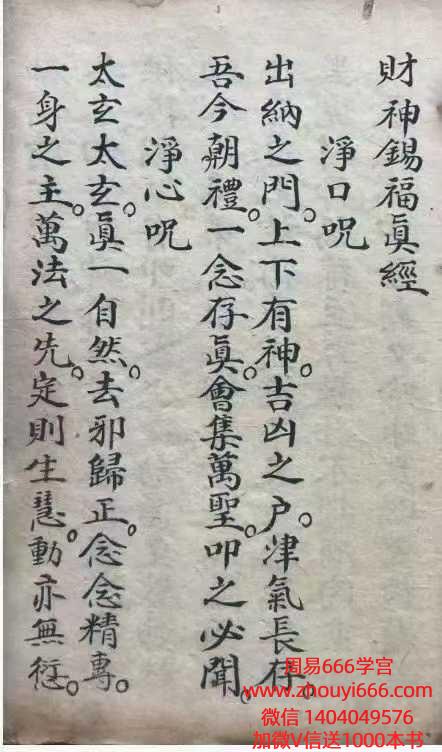 財神錫福眞經
淨口呪
出納之門。上下有神。吉凶之戶。津氣長存。
吾今朝禮。一念存眞。會集萬聖。叩之必聞。
淨心呪
太玄太玄。眞一自然。去邪歸正。念念精專。
一身之主。萬法之先。定則生慧。動亦無愆。
周易666学宫
www.zhouyi666.com
微信 1404049576
加微V信送1000本书